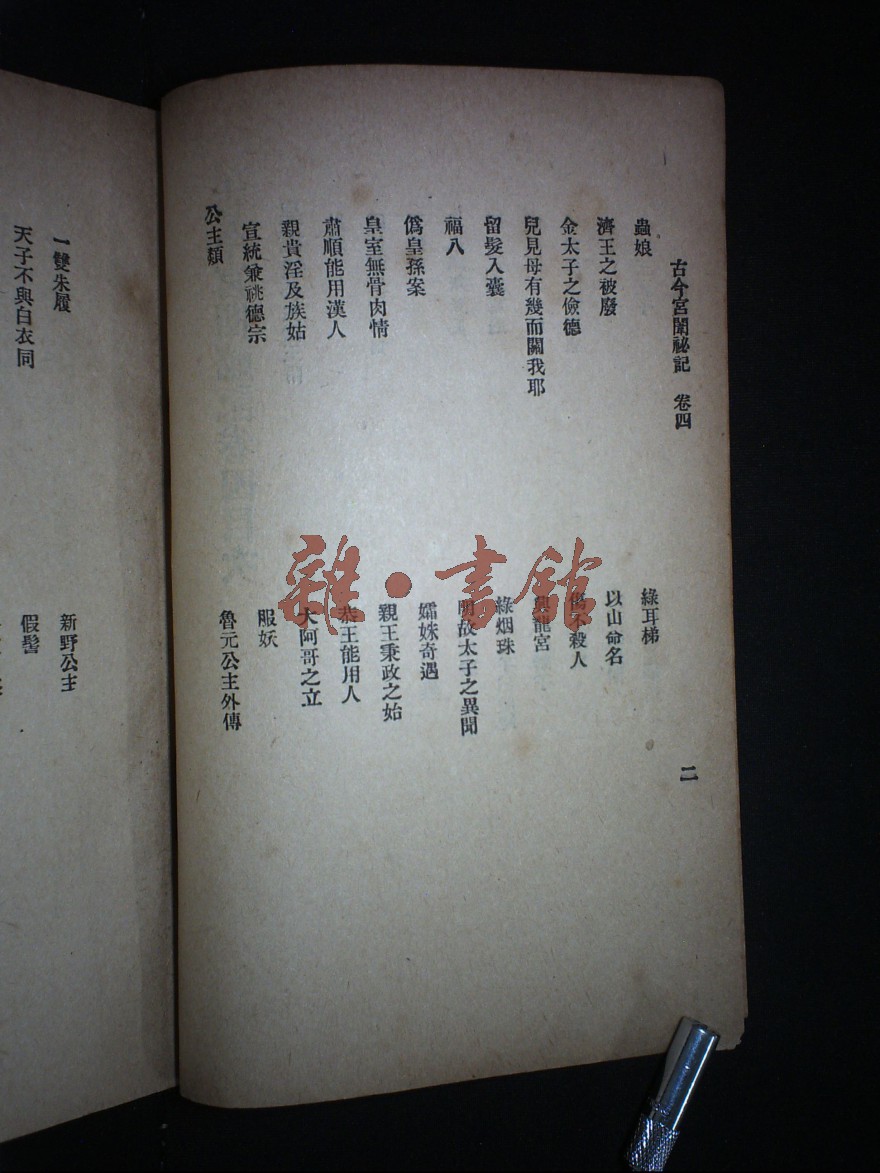 古今宮闈祕記 卷四
二
蟲娘
綠耳梯
濟王之被廢
以山命名
金太子之儉德
傷不殺人
兒見母有幾而關我耶
興龍宮
留髮入囊
綠烟珠
福八
明故太子之異聞
僞皇孫案
孀姝奇遇
皇室無骨肉情
親王秉政之始
肅順能用漢人
恭王能用人
親貴淫及族姑
大阿哥之立
宣統兼祧德宗
服妖
公主類
魯元公主外傳
一雙朱履
新野公主
天子不與白衣同
假髻
雜·書館